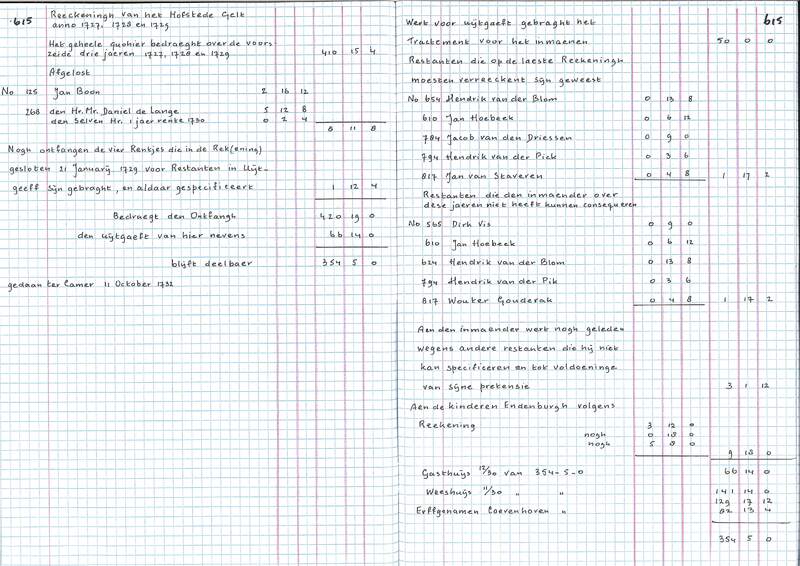 615
Reeckeningh van het Hofstede Gelt
anno 1727, 1728 en 1729
Het geheele quohier bedraeght over de voors
zeide drie jaeren 1727, 1728 en 1729 410 15 4
Afgelost
No 125 Jan Boon 2 16 12
268 den Hr. Mr. Daniel de Lange 5 12 8
den selven Hr. 1 jaer rente 1730 0 2 4
8 11 8
Nogh ontfangen de vier Rentjes die in de Rek(ening)
gesloten 21 Januarij 1729 voor Restanten in Uijt-
geeff sijn gebraght, en aldaar gespecificeert 1 12 4
Bedraegt den Ontfangh 420 19 0
den uijtgaeft van hier nevens 66 14 0
blijft deelbaer 354 5 0
gedaan ter Camer 11 October 1732
615
Wert voor uijtgaeft gebraght het
Tractement voor het inmaenen 50 0 0
Restanten die op de laeste Reekeningh
moesten verreeckent sijn geweest
No 654 Hendrik van der Blom 0 13 8
610 Jan Hoebeek 0 6 12
784 Jacob van den Driessen 0 9 0
794 Hendrik van der Pick 0 3 6
817 Jan van Staveren 0 4 8 1 17 2
Restanten die den inmaender over
dese jaeren niet heeft kunnen consequeren
No 565 Dirk Vis 0 9 0
610 Jan Hoebeek 0 6 12
624 Hendrik van der Blom 0 13 8
794 Hendrik van der Pik 0 3 6
817 Wouter Gouderak 0 4 8 1 17 2
Aen den inmaender wert nogh geleden
wegens andere restanten die hij niet
kan specificeren en tot voldoeninge
van sijne pretensie 3 1 12
Aen de kinderen Endenburgh volgens
Reekening 3 12 0
nogh 0 18 0
nogh 5 8 0
9 18 0
Gasthuijs 12/30 van 354-5-0 66 14 0
Weeshuijs 11/30 " " 141 14 0
129 17 12
Erffgenamen Coevenhoven " 82 13 4
354 5 0